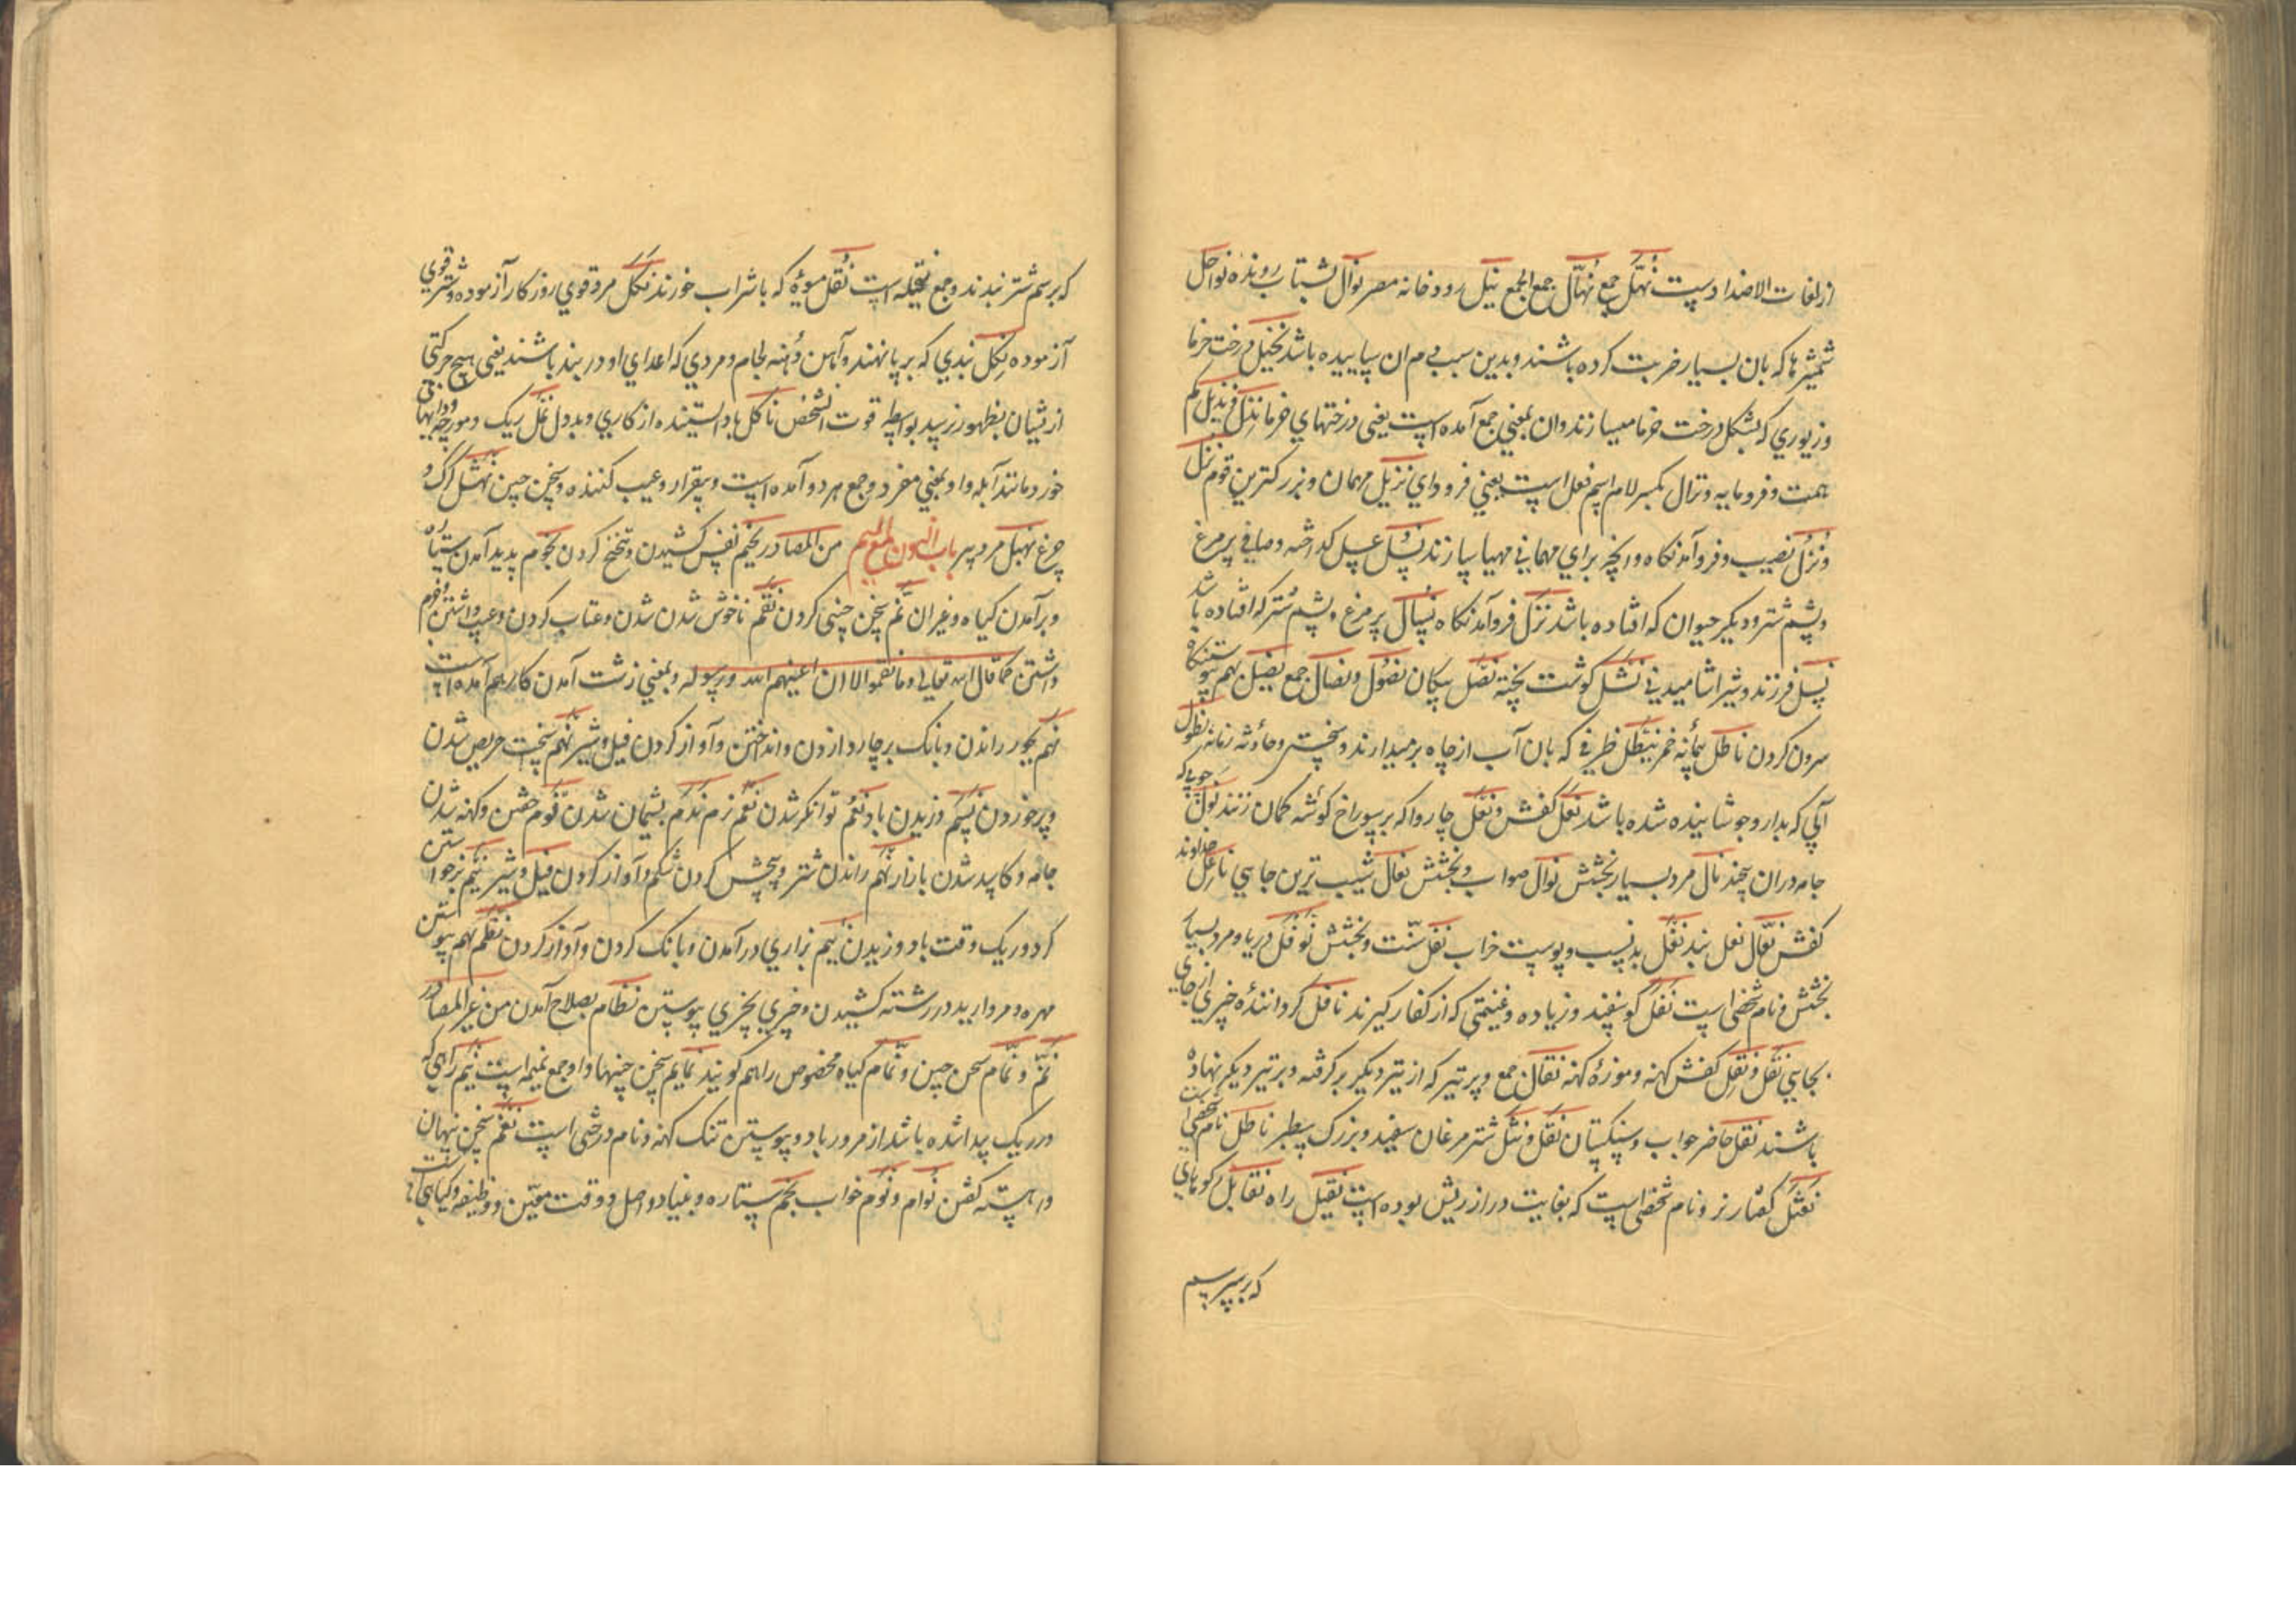 از لغات الاضداد است نُهَّل جمع نُهّال جمع الجمع نیل رودخانه مصر نوال بشتاب رونده نواحل
شمشیرها که بان بسیار ضربت کرده باشند و بدین سبب دم ان ساییده باشد نخیل درخت خرما
و زیوری که بشکل درخت خرما میسازند و ان بمعنی جمع آمده است یعنی درختهای خرما نذل و نذیل کم
همت و فرومایه و نزال بکسر لام اسم فعل است بمعنی فرود ای نزیل مهمان و بزرکترین قوم نزل
و نزل نصیب و فرو آمدنکاه و انچه برای مهمانی مهیا سازند نسل عسل کداخته و صافی پر مرغ
و پشم شتر و دیکر حیوان که افتاده باشد نزل فروآمدنکاه نسال پر مرغ و پشم شتر که افتاده باشد
نسل فرزند و شیر اشامیدنی نشل کوشت پخته نصل پیکان نصول و نصال جمع نصیل بهم
سرون کردن ناطل پیمانه خمر نیطل ظرفی که بان آب از چاه برمیدارند و سختی و حادثه زمانه نطول
آبی که بدارو جوشانیده شده باشد نعل کفش و نعل چاروا که بر سوراخ کوشه کمان زنند نول چوبی که
جامه دران پیچند نال مرد بسیار بخشش نوال صواب و بخشش نعال شیب ترین جایی ناعل خداوند
کفش نعّال نعل بند نغل بد نسب و پوست خراب نفل سنّت و بخشش نوفل دریا و مرد بسیار
بخشش و نام شخصی است نفل کوسفند و زیاده و غنیمتی که از کفار کیرند ناقل کرداننده چیزی از جایی
بجایی نقل و نقل کفش کهنه و موزهٔ کهنه نقال جمع و پر تیر که از تیر دیکر برکرفته و بر تیر دیکر نهاده
باشند نقل حاضر جواب و سنکستان نقل و نثل شتر مرغان سفید و بزرک سطبر ناطل نام شخصی است
نعثل کفتار نر و نام شخصی است که بغایت دراز ریش بوده است نقیل راه نقایل
که بر سر سم
که بر سم شتر بندند و جمع نقیله است نقل میوهٔ که با شراب خورند نکل مرد قوی روزکار آزموده و شتر قوی
آزموده نکل بندی که بر پا نهند و آهن دهنه لجام و مردی که اعدای او در بند باشند یعنی هیچ حرکتی
از یشان بظهور نرسد بواسطه قوت انشخص ناکل باز ایستنده از کاری و بددل نمل ریک و مورچه
خورد مانند آبله و او بمعنی مفرد و جمع هر دو آمده است و بیقرار و عیب کننده و سخن چین نهشل کرک و
چرغ نهبل مرد پیر باب النون مع المیم من المصادر نخیم نفس کشیدن و تنخنخ کردن نجوم پدید آمدن ستاره
و برآمدن کیاه و غیر ان نم سخن چینی کردن نقم ناخوش شدن شدن و عتاب کردن و عیب داشتن
داشتن کما قال الله تعالی و ما نقموا الا ان اغنیهم الله و رسوله و بمعنی زشت آمدن کار هم آمده است
نهم بجور راندن و بانک بر چاروا زدن و انداختن و آواز کردن فیل و شیر نهم سخت حریص شدن
و پر خوردن نسم وزیدن باد نعم توانکر شدن نعم نرم ندم پشیمان شدن نوم خفتن و کهنه شدن
جامه و کاسد شدن بازار نهم راندن شتر و پخش کردن شکم و آواز کردن فیل و شیر نئیم
کردو ریک وقت باد وزیدن نئیم بزاری درآمدن و بانک کردن و آواز کردن نظم بهم پیوستن
مهره و مروارید در رشته کشیدن و چیزی بچیزی پیوستن نظام بصلاح آمدن من غیر المصادر
نمّ و نمّام سخن چین و نمّام کیاه مخصوص را هم کویند نمایم سخن چینها و او جمع نمیمه است نیم راهی که
در ریک پیدا شده باشد از مرور باد و پوستین تنک کهنه و نام درختی است نغم سخن پنهان
و اهسته کفتن نوام و نوم خواب نجم ستاره و بنیاد و اصل و وقت معیّن و وظیفه و کیاهی است